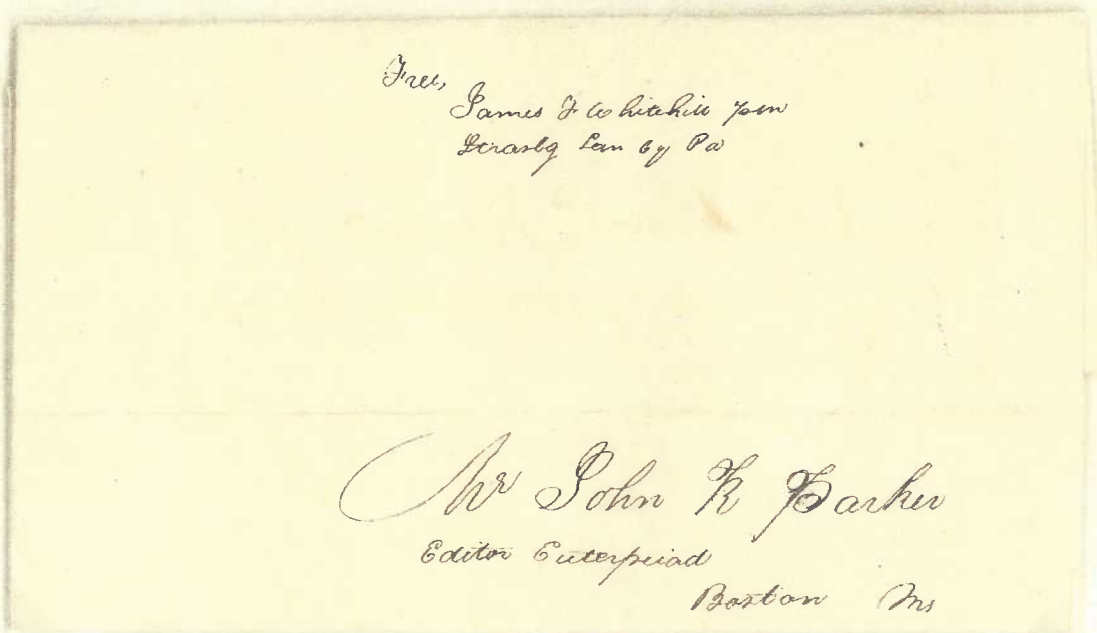 Free,
James F Whitehill pm
Strasbg Lan Cy Pa
Mr John R Parker
Editor Euterpeiad
Boston Ms